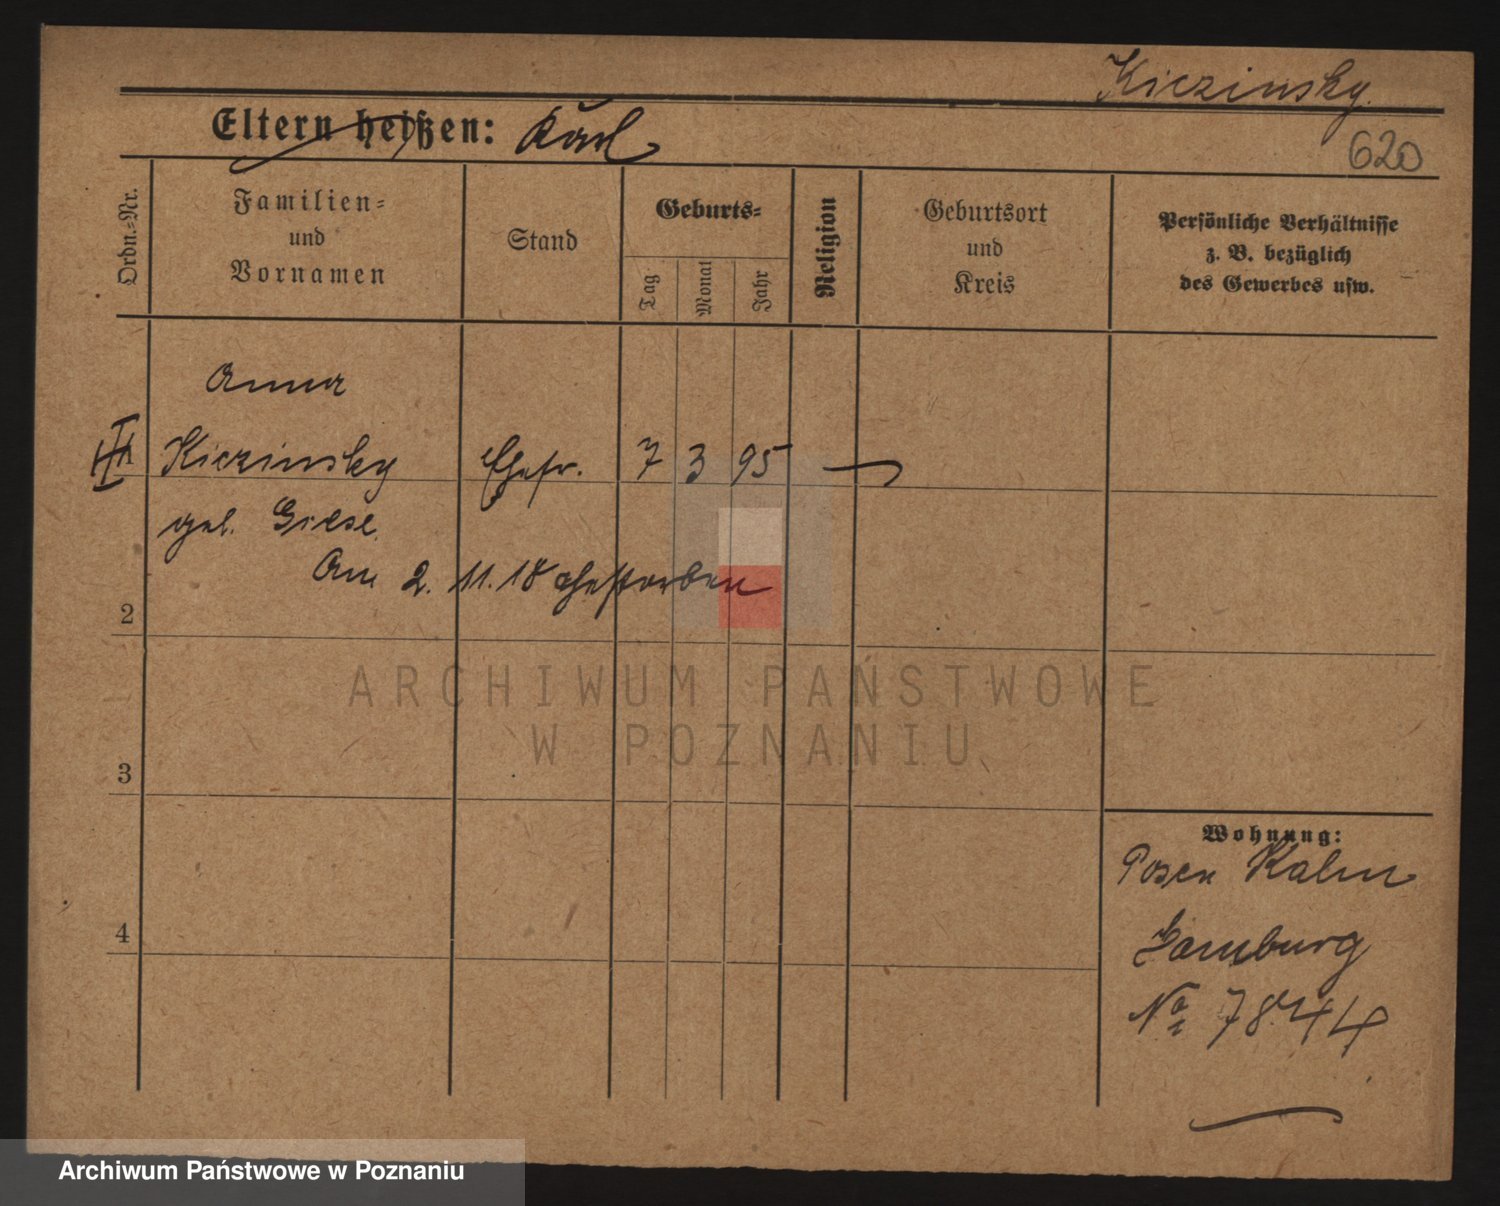 Kiczinsky
Eltern heißen: Karl
620
Ordn.-Nr.
Familien-
und
Vornamen
Stand
Geburts-
Tag
Monat
Jahr
Religion
Geburtsort
und
Kreis
Persönliche Verhältnisse
z. B. bezüglich
des Gewerbes usw.
Anna
1 Kiczinsky Ehefr. 7 3 95 —
geb. Giese
Am 2. 11. 18 gestorben
2
3
4
Wohnung:
Posen
No 7844
ARCHIWUM PAŃSTWOWE
W POZNANIU
Archiwum Państwowe w Poznaniu